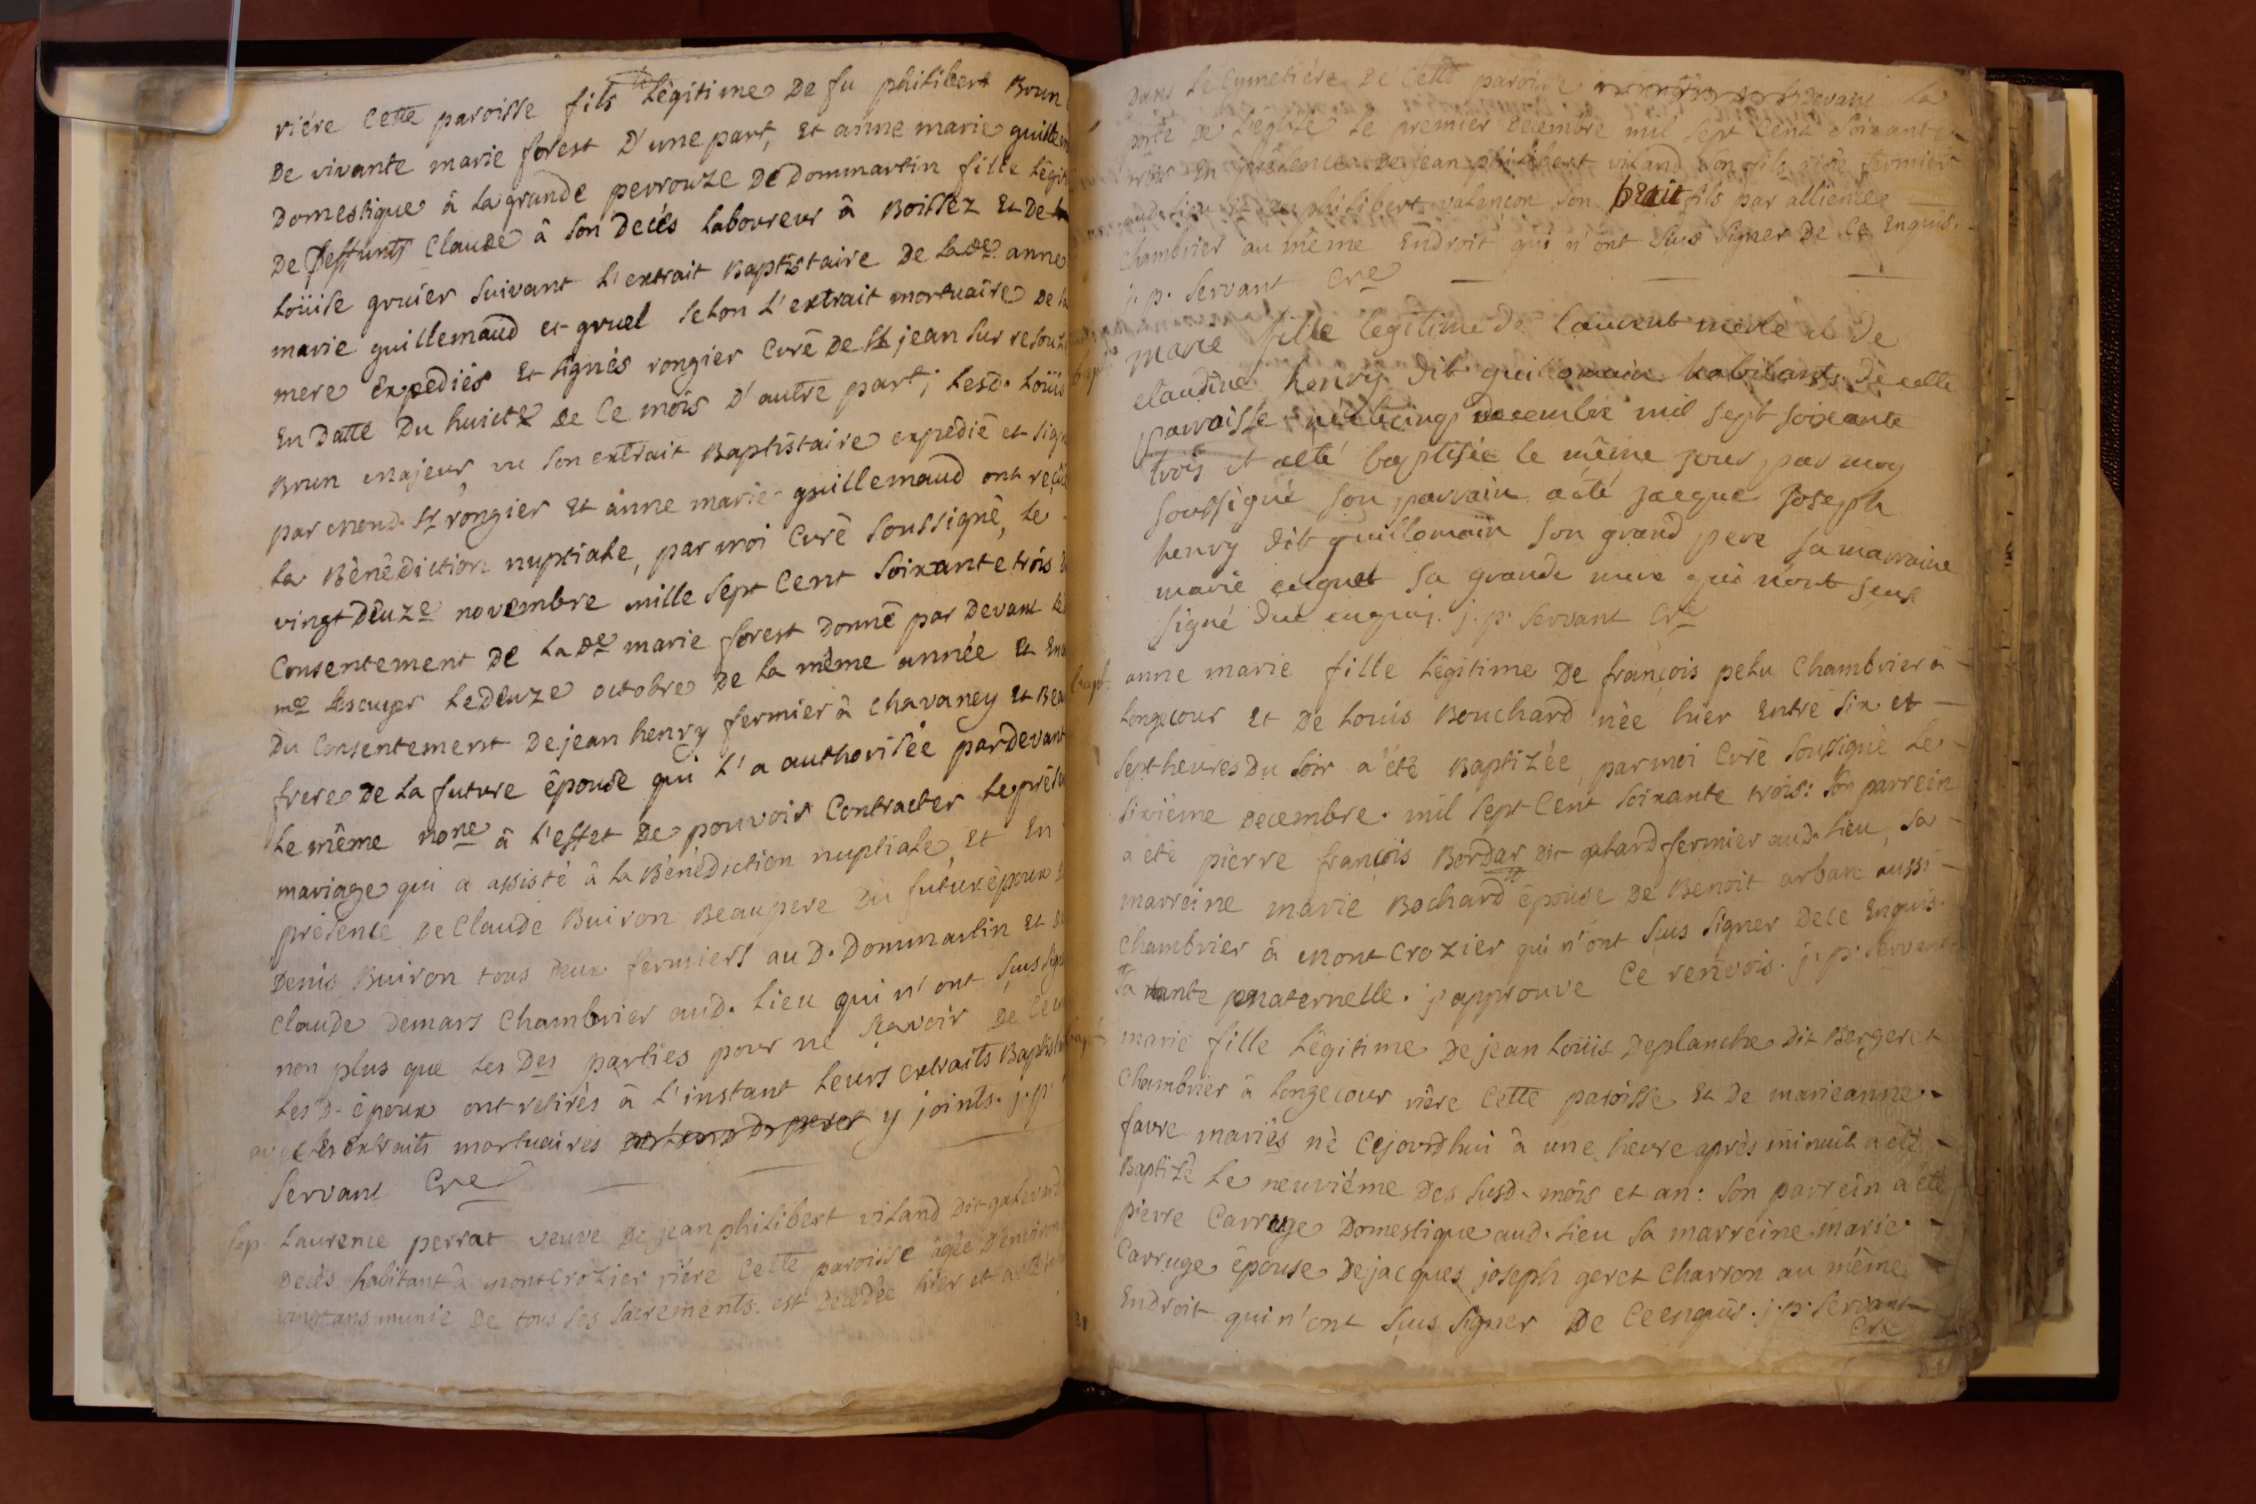 riére Cette paroisse fils Légitime De fu philibert Brun
De vivante marie forest D'une part, Et anne marie guille
Domestique à La grande perrouze De Dommartin fille Légit
De deffunts Claude à Son Decés Laboureur à Boissez Et De
Loüise gruier Suivant L'extrait Baptistaire De Lade anne
marie guillemaud et gruel Selon L'extrait mortuaire De
mere Expediés Et signés rongier Curé De St jean Sur resouze
En Datte Du huict De Ce mois D'autre part; Lesd. Loüis
Brun Majeur, vu Son extrait Baptistaire expedié et sign
par mond. Sr rongier Et anne marie guillemaud ont reçu
La Bénédiction nuptiale, par moi Curé Soussigné, Le
vingt Deuze novembre mille Sept Cent Soixante trois
Consentement De La De marie forest Donné par Devant
me Lescuyer Le Deuze octobre De la même année Et En
Du Consentement De jean henry fermier à Chavaney Et Beau
frere De La future épouse qui L'a authorisée par devant
Le même nore à L'effet De pouvoir Contracter Le prés
mariage qui a assisté à La Bénédiction nuptiale, Et En
présence De Claude Buiron Beaupere Du futur époux
Denis Buiron tous Deux fermiers au D. Dommartin Et
Claude Demars Chambrier aud. Lieu qui n'ont Sçus sign
non plus que Les Des parties pour ne Sçavoir De Ce
Les D. époux ont retirés à L'instant Leurs extraits Baptist
avec Les extraits mortuaires y joints. j. p.
Servant Cre
sep. Laurence perrat veuve De jean philibert viland Dit
Decés habitant à montCrozier riére Cette paroisse âgée D'environ
vingt ans munie De tous Ses Sacrements. est Decedée hier et
Dans Le Cymetiére De Cette paroisse Devant La
porte De L'église Le premier Decembre mil Sept Cent Soixante
trois En présence De jean philibert viland Son fils riére fermier
aud. Lieu Et De philibert valençon Son petit fils par allience
Chambrier au même Endroit qui n'ont Sçus Signer De Ce Enquis.
j. p. Servant Cre
marie fille legitime de laurent merle et de
claudine henry dit guillomain habitants de cette
paroisse née le cinq decembre mil sept soixante
trois et a eté baptisée le même jour par moy
soussigné son parrain a été jacque joseph
henry dit guillomain son grand pere sa marraine
marie enguet sa grande mere qui n'ont seus
signé due enquis. j. p. Servant Cre
bapt. anne marie fille Légitime De françois pelu Chambrier à
Longecour Et De Louis Bouchard née hier Entre Six et
Sept heures Du Soir a été Baptizée par moi Curé Soussigné Le
Sixiéme Decembre. mil Sept Cent Soixante trois: Son parrein
a été pierre françois Bordar Dit galard fermier aud. Lieu, Sa
marreine marie Bochard épouse De Benoit arban aussi
Chambrier à MontCrozier qui n'ont Sçus Signer De Ce Enquis.
Sa tante maternelle. j'approuve Ce renvois. j. p. Servant
bapt. marie fille Légitime De jean Loüis Deplanche Dit Bergeret
Chambrier à Longecour riére Cette paroisse Et De marieanne
favre mariés né Cejourdhui à une heure après minuit a été
Baptizé Le neuviéme Des Susd. mois et an: Son parrein a été
pierre Carruge Domestique aud. Lieu Sa marreine marie
Carruge épouse De jacques joseph geret Charron au même
Endroit qui n'ont Sçus Signer De Ce enquis. j. p. Servant
Cre